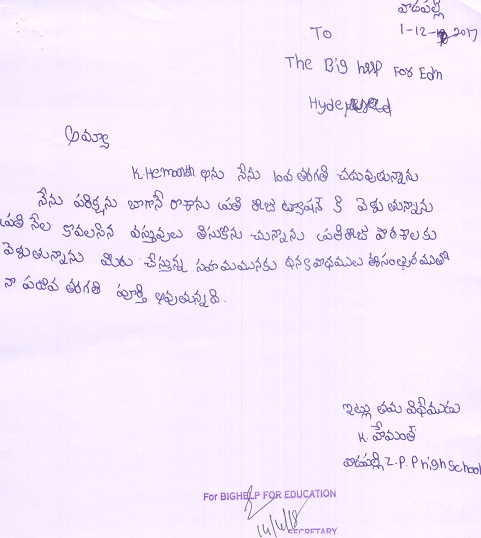 వాడపల్లి
1-12-2017
To
The Big help For Edn
Hyderabad
అమ్మా
K. Hemanth అను నేను 10వ తరగతి చదువుతున్నాను
నేను పరీక్షను బాగానే రాశాను ప్రతి రోజు ట్యూషన్ కి వెళుతున్నాను
ప్రతి నెల కావలసిన వస్తువులు తీసుకొను చున్నాను ప్రతిరోజు పాఠశాలకు
వెళుతున్నాను మీరు చేస్తున్న సహాయమునకు ధన్యవాధములు ఈసంల్సరముతో
నా పదివ తరగతి పూర్తి అవుతున్నది.
ఇట్లు తమ విధేముడు
K. హేమంత్
వాడపల్లి Z.P.P High School
For BIGHELP FOR EDUCATION
14/4/18
SECRETARY